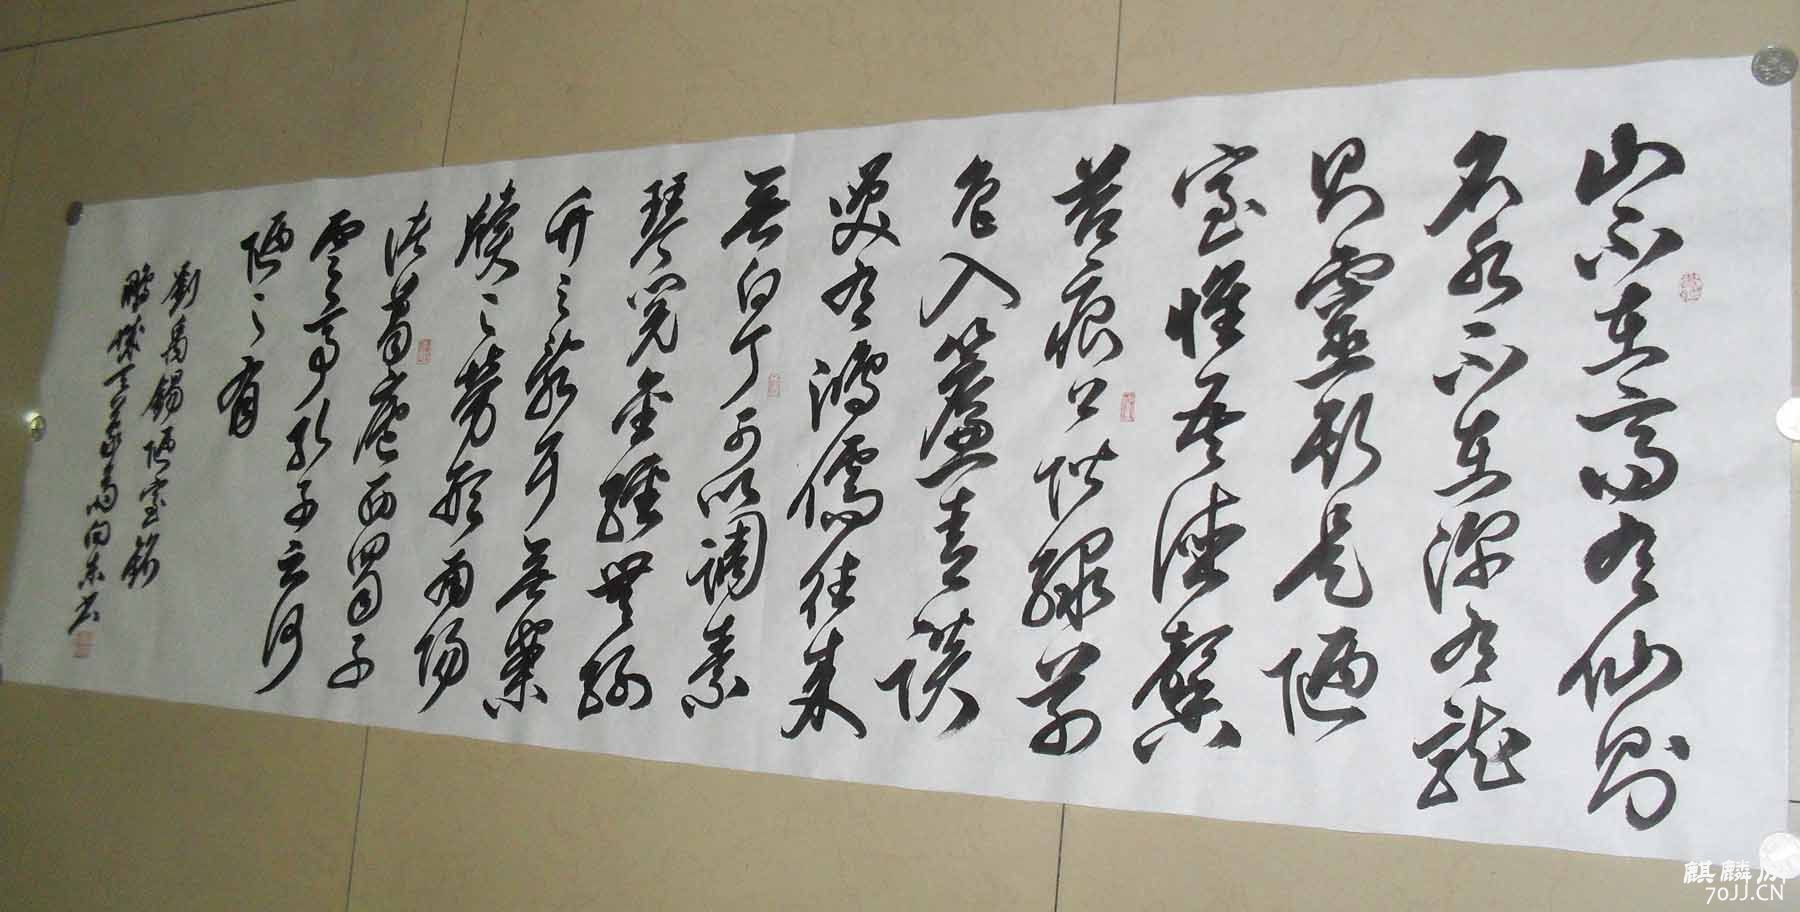 山不在高有仙則
名水不在深有龍
則靈斯是陋
室惟吾德馨
苔痕上階綠草
色入簾青談
笑有鴻儒往来
無白丁可以調素
琴閱金經無絲
竹之亂耳無案
牘之勞形南陽
諸葛廬西蜀子
雲亭孔子云何
陋之有
劉禹錫陋室銘
鵬城
麒麟
70JJ.CN